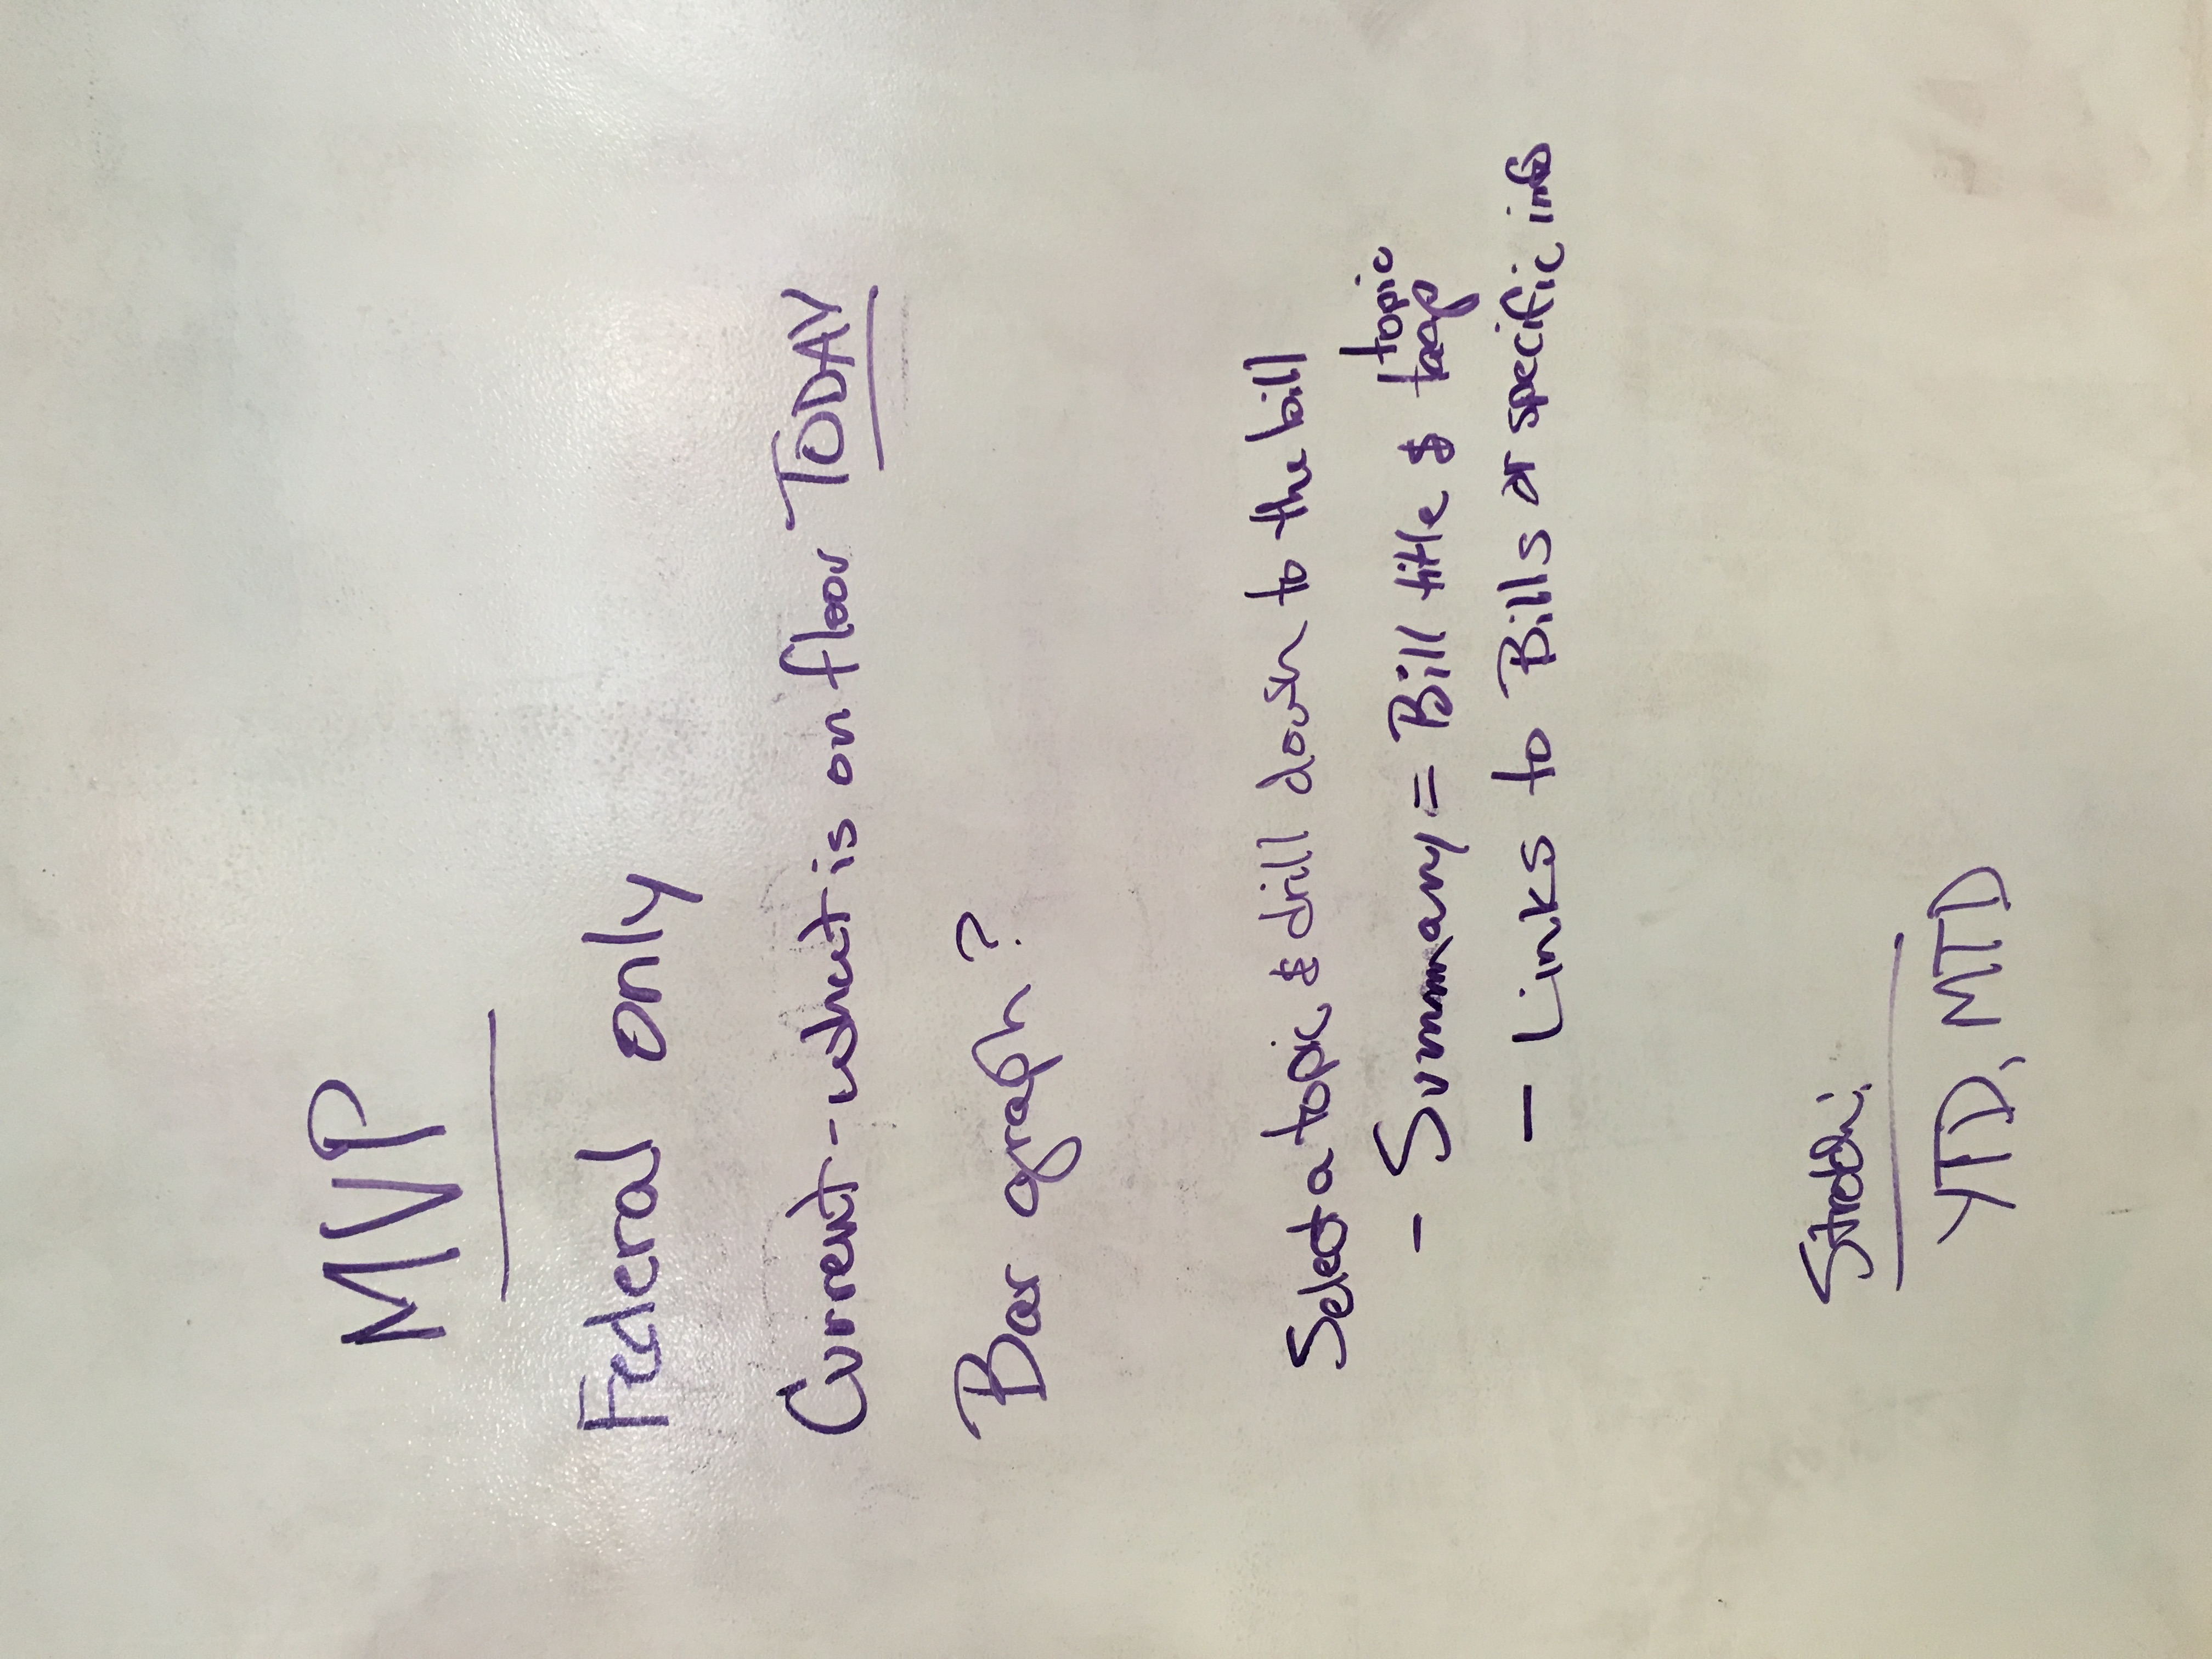 MVP
Federal only
Current - what is on floor TODAY
Bar graph?
Select a topic & drill down to the bill
- Summary = Bill title & topic tags
- Links to Bills or specific info
Stretch:
YTD, MTD